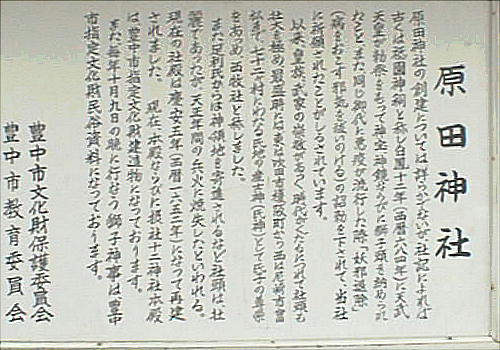 原田神社
原田神社の創建については詳らかでないが社記によれば
古くは祇園神祠と称し白鳳十二年（西暦六八四年）に天武
天皇が勅祭をもって神宝神鏡ならびに獅子頭を納められ
たことまた同じ御代に悪疫が流行した際「妖邪退除」
（病をおこす邪気を被いのける）の詔勅を下されて、当社
に祈願されたことがしるされています。
以来皇族、武家の崇敬があつく時代がくだるにつれて社頭も
壮大を極め最盛時には東は吹田市榎阪町から西は尼崎市富
松まで、七十二村にわたる民衆の産土神（氏神）として氏子の
を高め、西牧社と称しました。
また足利氏からは神領地を寄進されるなど社頭は壮
麗であったが、天正年間の兵火に焼失したといわれる。
現在の社殿は慶安五年（西暦一六五二年）になって再建
されました。　現在、本殿ならびに摂社十二神社本殿
は豊中市指定文化財建造物になっております。
また毎年十月九日の晩に行せらう獅子神事は豊中
市指定文化財民俗資料になっております。
豊中市文化財保護委員会
豊中市教育委員会